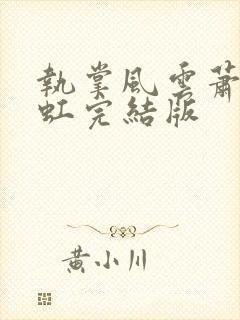 執掌風雲蕭
虹完結版
黃小川